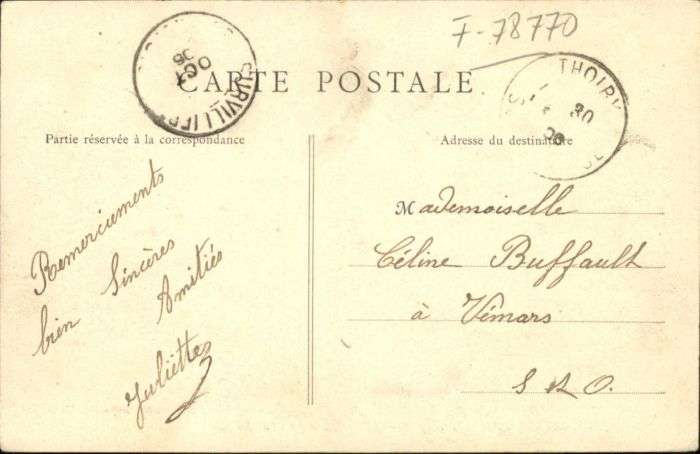 F-78770
CARTE POSTALE
Partie réservée à la correspondance
Adresse du destinataire
SURVILLIERS
OCT
THOIRY
30
Remerciements
bien Sincères
Amitiés
Juliette
Mademoiselle
Céline Buffault
à Vémars
S & O.